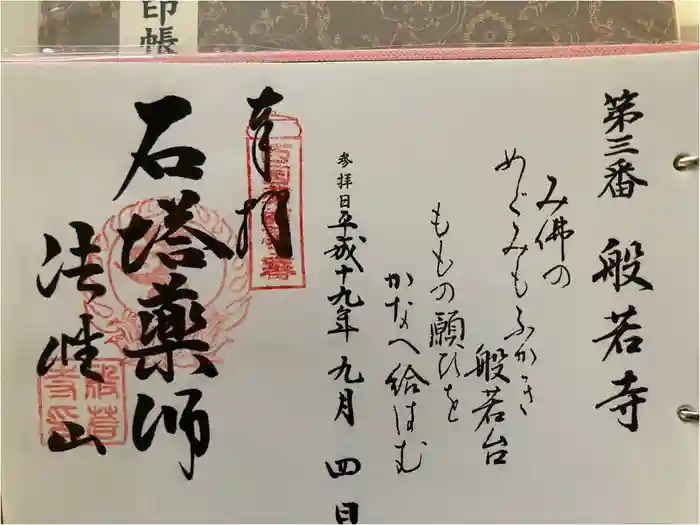 印帳
第三番 般若寺
み佛の
めぐみもふかき
般若台
ももの願ひを
かなへ給はむ
参拝日 平成十九年 九月 四日
奉拝
石塔薬師
法性山
般若寺印